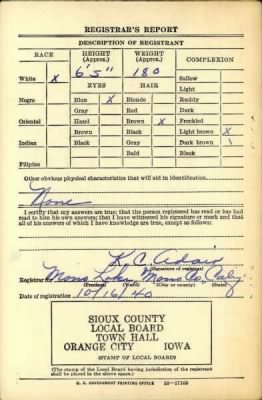 REGISTRAR'S REPORT
DESCRIPTION OF REGISTRANT
RACE HEIGHT (Approx.) WEIGHT (Approx.) COMPLEXION
6' 5" 180
White X Sallow
EYES HAIR Light
Negro Blue X Blonde Ruddy
Gray Red Dark
Oriental Hazel Brown X Freckled
Brown Black Light brown X
Indian Black Gray Dark brown \
Bald Black
Filipino
Other obvious physical characteristics that will aid in identification
None
I certify that my answers are true; that the person registered has read or has had
read to him his own answers; that I have witnessed his signature or mark and that
all of his answers of which I have knowledge are true, except as follows:
K. C. Adair
(Signature of registrar)
Registrar for Mono Lake, Mono Co. Calif
(Precinct) (Ward) (City or county) (State)
Date of registration 10/16/40
SIOUX COUNTY
LOCAL BOARD
TOWN HALL
ORANGE CITY IOWA
(STAMP OF LOCAL BOARD)
(The stamp of the Local Board having jurisdiction of the registrant
shall be placed in the above space.)
U. S. GOVERNMENT PRINTING OFFICE 16—17105